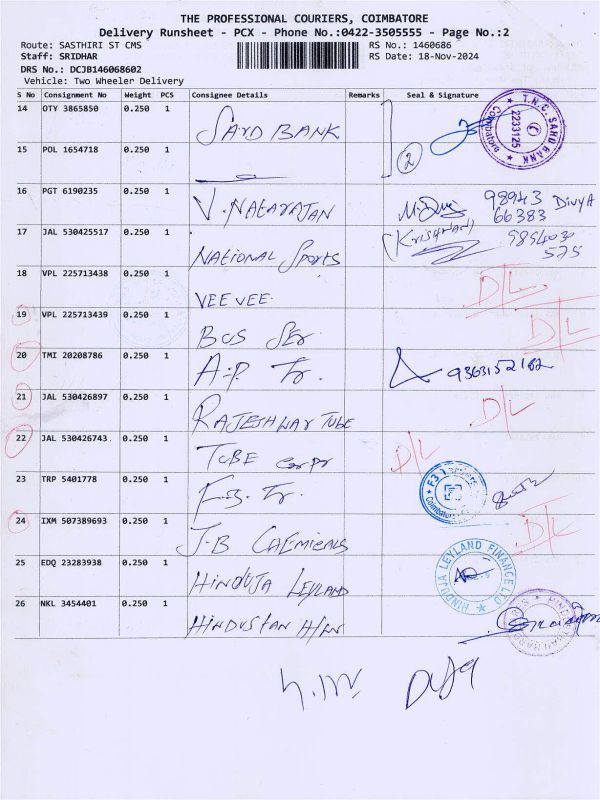 THE PROFESSIONAL COURIERS, COIMBATORE
Delivery Runsheet - PCX - Phone No.:0422-3505555 - Page No.:2
Route: SASTHIRI ST CMS RS No.: 1460686
Staff: SRIDHAR RS Date: 18-Nov-2024
DRS No.: DCJB146068602
Vehicle: Two Wheeler Delivery
S No Consignment No Weight PCS Consignee Details Remarks Seal & Signature
14 OTY 3865850 0.250 1 SAYD BANK
T.N.C. SAHU BANK 2233125 Coimbatore
15 POL 1654718 0.250 1 2
16 PGT 6190235 0.250 1 V. NATARAJAN 98943 66383 DIVYA
17 JAL 530425517 0.250 1 NATIONAL Sports (KRISHNAN) 9894030 575
18 VPL 225713438 0.250 1 VEE VEE D/L
19 VPL 225713439 0.250 1 D/L
20 TMI 20208786 0.250 1 A.P. Tr.
21 JAL 530426897 0.250 1 RAJESHWAR TUBE D/L
22 JAL 530426743 0.250 1 TUBE Corpr D/L
23 TRP 5401778 0.250 1 Coimbatore
24 IXM 507389693 0.250 1 J.B CHEMICALS D/L
25 EDQ 23283938 0.250 1 HINDUJA LEYLAND HINDUJA LEYLAND FINANCE LTD
26 NKL 3454401 0.250 1 HINDUSTAN